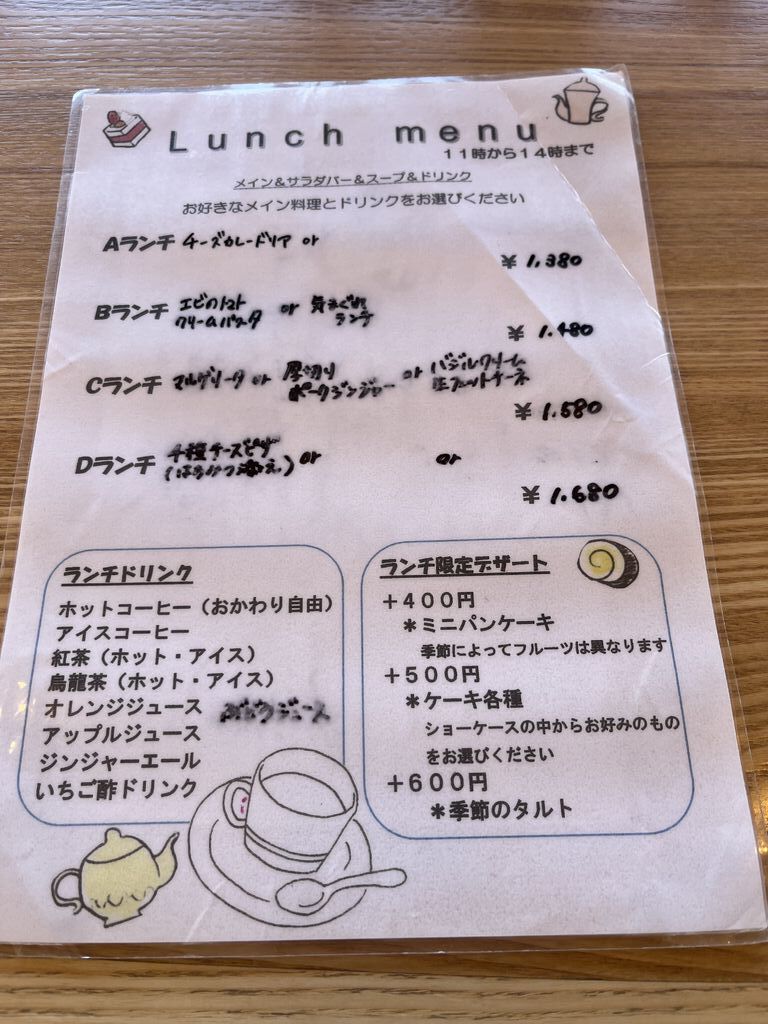 Lunch menu
11時から14時まで
メイン&サラダバー&スープ&ドリンク
お好きなメイン料理とドリンクをお選びください
Aランチ チーズカレードリア or
¥ 1.380
Bランチ エビのトマト クリームパスタ or 気まぐれ ランチ
¥ 1.480
Cランチ マルゲリータ or 厚切り ポークジンジャー or バジルクリーム 生フェットチーネ
¥ 1.580
Dランチ 千種チーズピザ (はちみつ添え) or or
¥ 1.680
ランチドリンク
ホットコーヒー(おかわり自由)
アイスコーヒー
紅茶(ホット・アイス)
烏龍茶(ホット・アイス)
オレンジジュース ぶどうジュース
アップルジュース
ジンジャーエール
いちご酢ドリンク
ランチ限定デザート
+400円
*ミニパンケーキ
季節によってフルーツは異なります
+500円
*ケーキ各種
ショーケースの中からお好みのもの
をお選びください
+600円
*季節のタルト